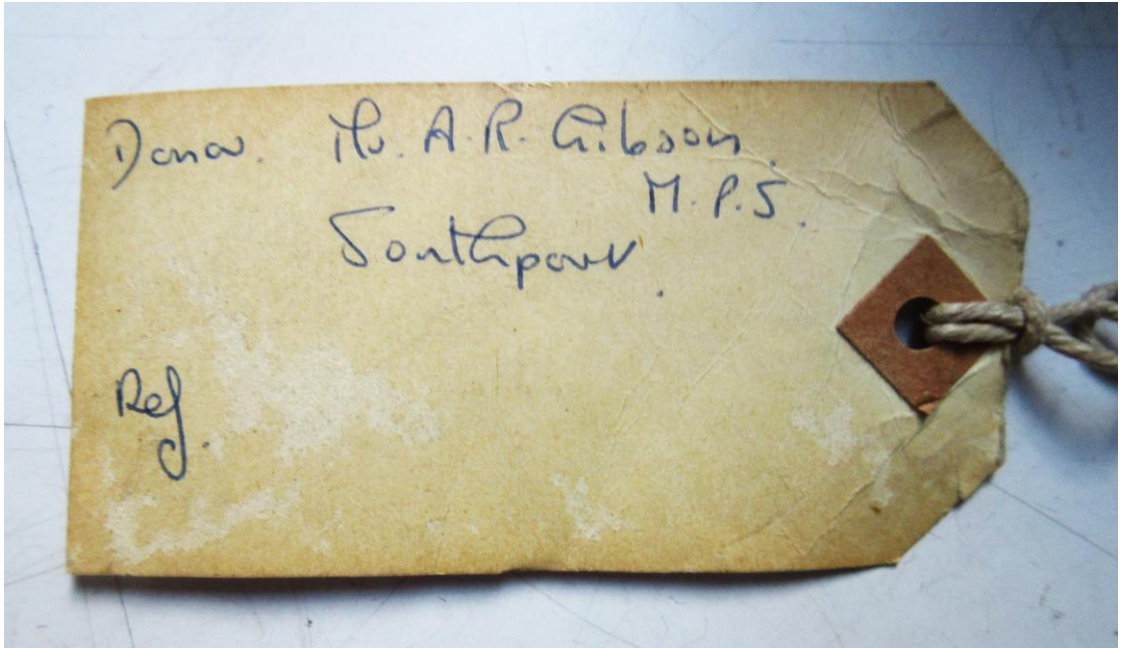 Donor. Mr. A. R. Gibson.
M.P.S.
Southport.
Ref.